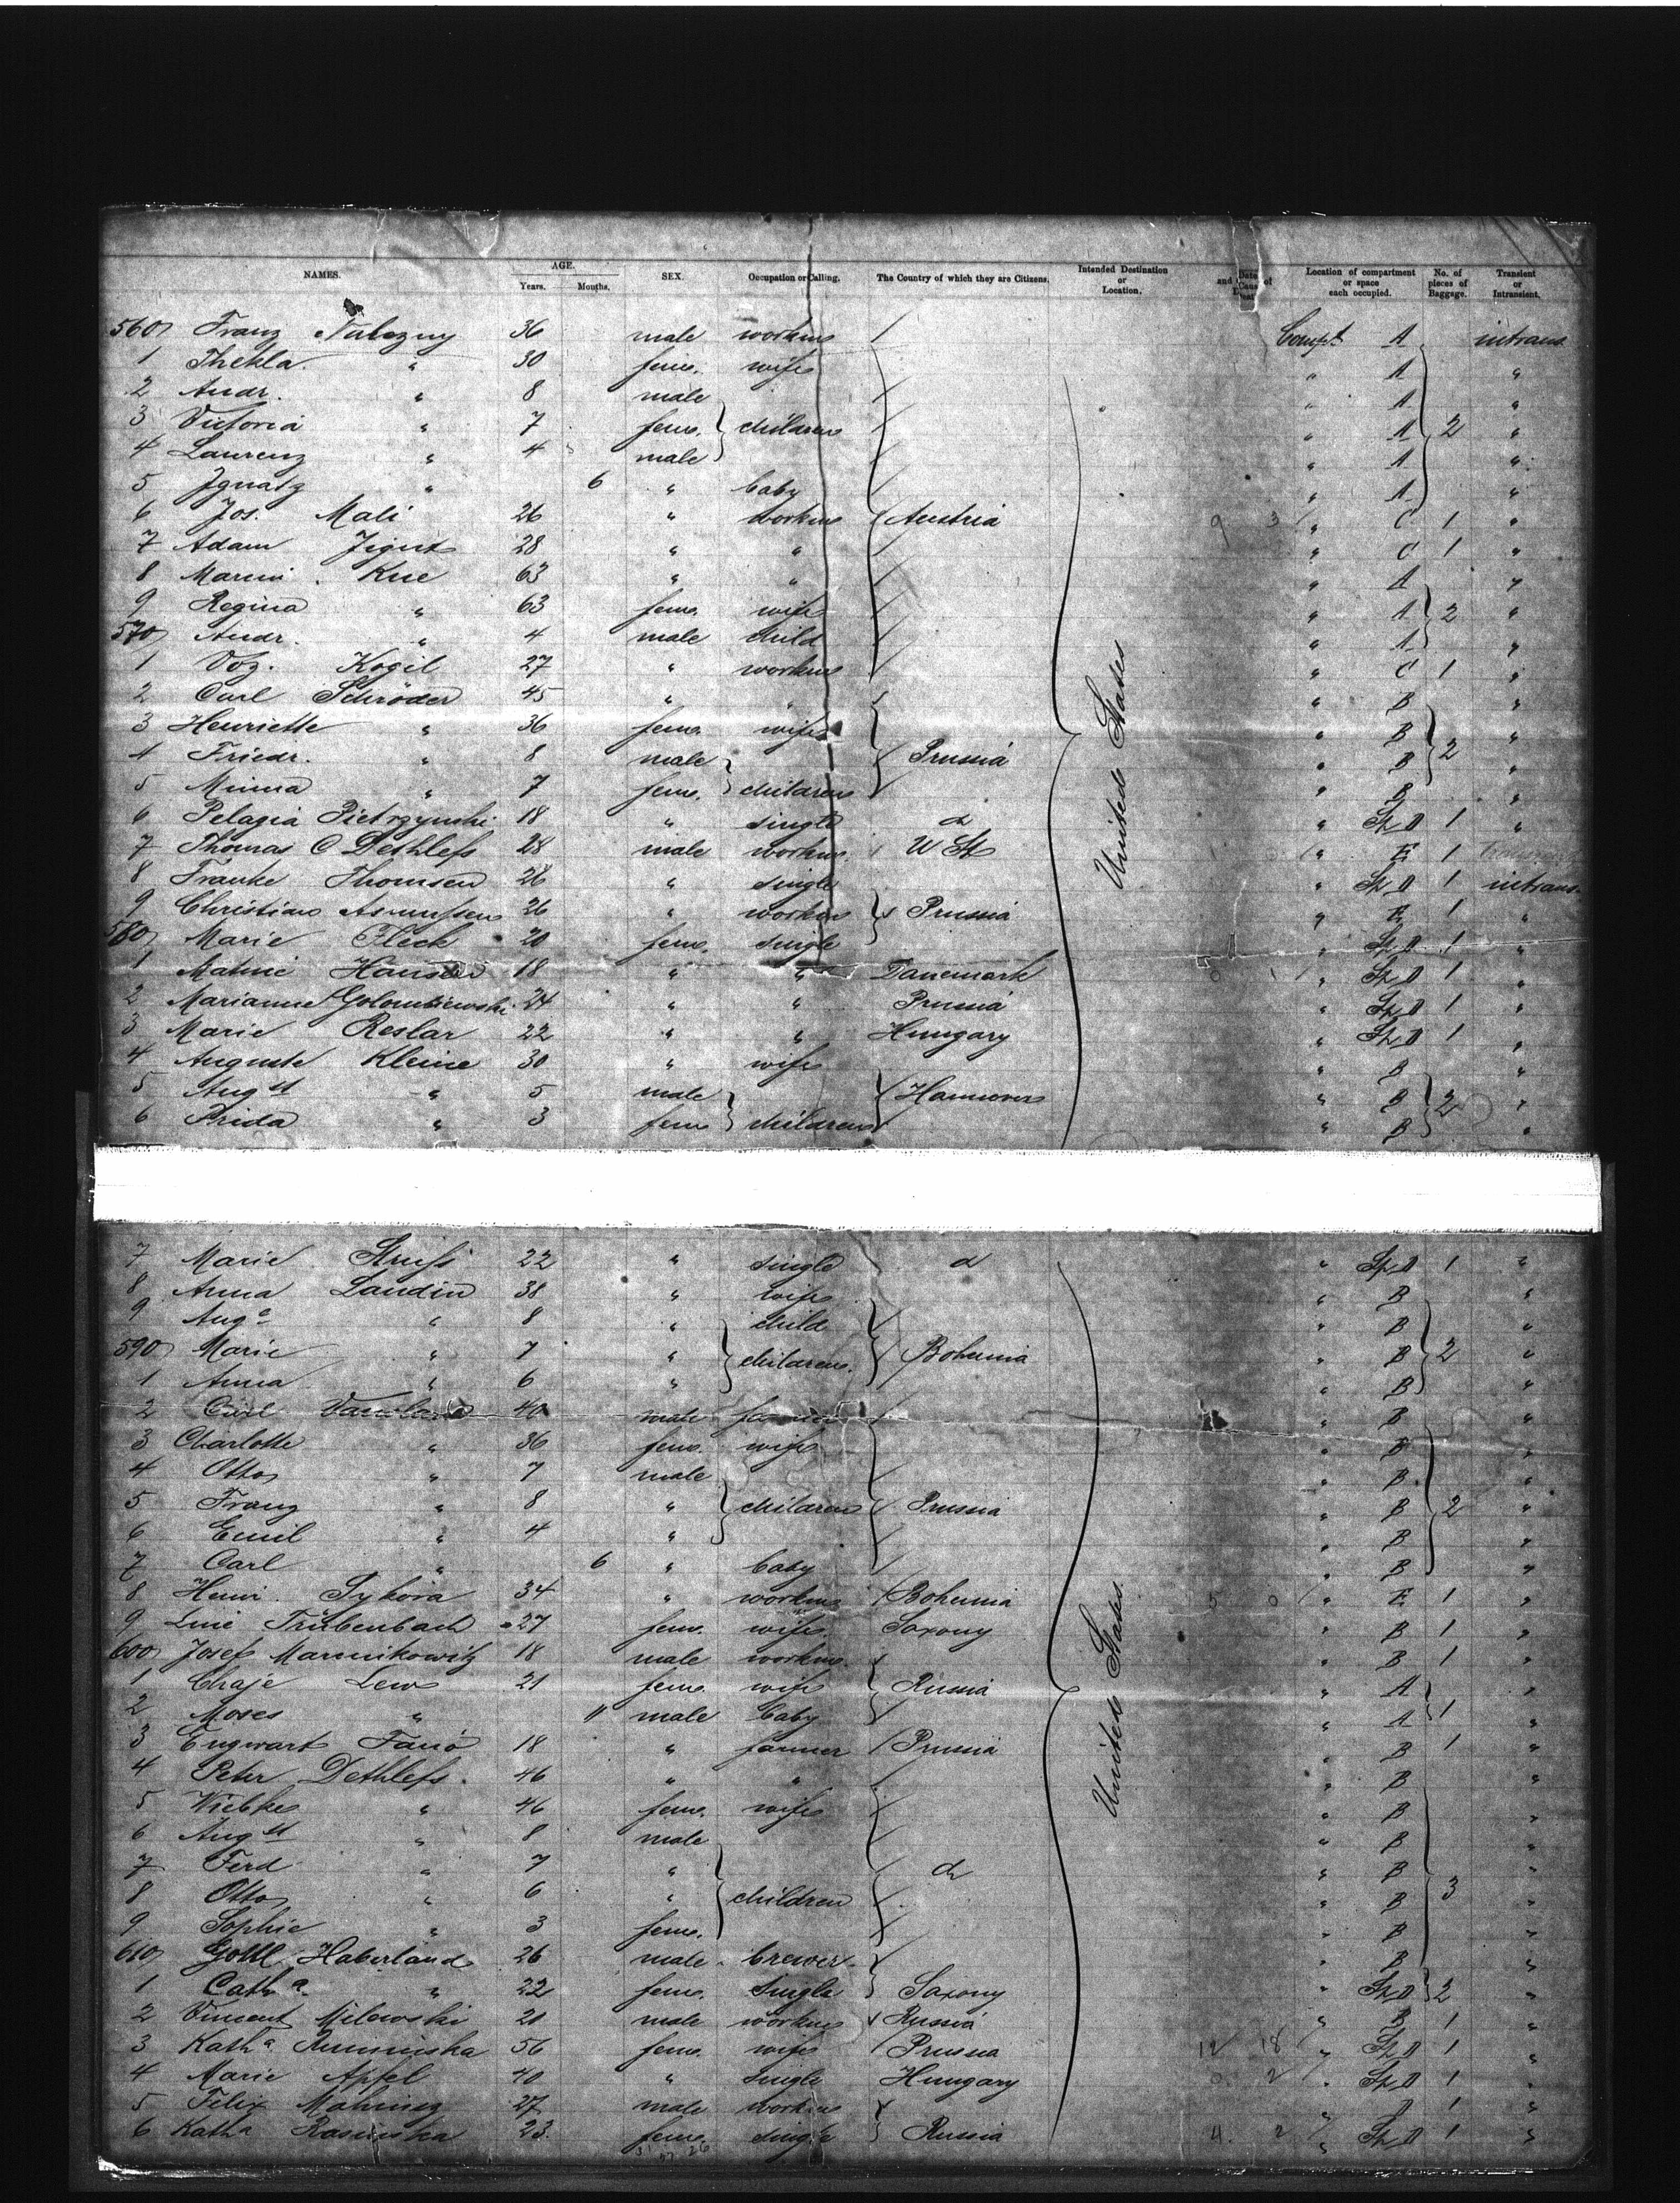 NAMES. AGE. Years. Months. SEX. Occupation or Calling. The Country of which they are Citizens. Intended Destination or Location. Date and Cause of Location of compartment or space each occupied. No. of pieces of Baggage. Transient or Intransient.
560 Franz 36 male workm / Compt A intrans
1 Thekla " 30 fem. wife " A "
2 Andr. " 8 male " A "
3 Victoria " 7 fem. children " A 2 "
4 Laurenz " 4 male " A "
5 Ignatz " 6 " baby " A "
6 Jos. Mali 26 " workm Austria " C 1 "
7 Adam 28 " " " C 1 "
8 Kne 63 " " " A "
9 Regina " 63 fem. wife " A 2 "
570 Andr. " 4 male child " A "
1 Kogil 27 " workm " C 1 "
2 Carl Schröder 45 " " " B "
3 Henriette " 36 fem. wife " B "
4 Friedr. " 8 male Prussia " B 2 "
5 Minna " 7 fem. children " B "
6 Pelagia Pietrzynski 18 " single d " Sp D 1 "
7 Thomas C Dethlefs 28 male workm U St " E 1
8 Frauke Thomsen 26 " single " Sp D 1 intrans
9 Christian Asmussen 26 " workm Prussia " E 1 "
580 Marie Fleck 20 fem. single " Sp D 1 "
1 18 " " Danemark " Sp D 1 "
2 Marianne Golombiewski 24 " " Prussia " Sp D 1 "
3 Marie Reslar 22 " " Hungary " Sp D 1 "
4 Auguste Kleine 30 " wife " B "
5 Augst " 5 male Hannover " B 2 "
6 Frida " 3 fem children " B "
United States
7 Marie 22 " single d " Sp D 1 "
8 Anna Landin 38 " wife " B "
9 Auga " 8 " child " B "
590 Marie " 7 " children. Bohemia " B 2 "
1 Anna " 6 " " B "
2 Carl 40 male farmer " B "
3 Charlotte " 36 fem. wife " B "
4 Otto " 7 male " B "
5 Franz " 8 " children Prussia " B 2 "
6 Emil " 4 " " B "
7 Carl " 6 " baby " B "
8 Sykora 34 " workm Bohemia " E 1 "
9 Line Trübenbach 27 fem. wife Saxony " B 1 "
600 Josef Marmikowitz 18 male workm. " B 1 "
1 Chaje Lew 21 fem. wife Russia " A "
2 Moses " 11 male baby " A 1 "
3 Engwart Fanö 18 " farmer Prussia " B 1 "
4 Peter Dethlefs 46 " " " B "
5 Wiebke " 46 fem. wife " B "
6 Augst " 8 male " B "
7 Ferd " 7 " d " B "
8 Otto " 6 " children " B 3 "
9 Sophie " 3 fem. " B "
610 Gottl Haberland 26 male brewer " B "
1 Catha " 22 fem. single Saxony " Sp D 2 "
2 Vincent Milewski 20 male workm Russia " B 1 "
3 Katha 56 fem. wife Prussia 12 18 " Sp D 1 "
4 Marie Apfel 40 " single Hungary " Sp D 1 "
5 Felix 27 male workm " 1 "
6 Katha Rasinska 23 fem. single Russia 4 2 " Sp D 1 "
United States.